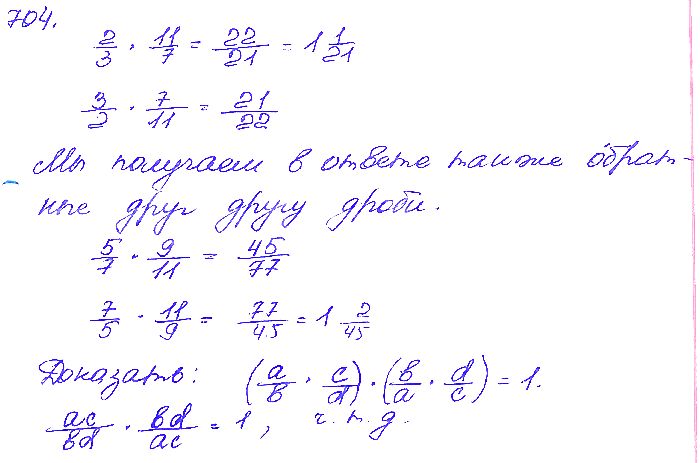 704.
2/3 · 11/7 = 22/21 = 1 1/21
3/2 · 7/11 = 21/22
Мы получаем в ответе также обрат-
ные друг другу дроби.
5/7 · 9/11 = 45/77
7/5 · 11/9 = 77/45 = 1 2/45
Доказать: (a/b · c/d) · (b/a · d/c) = 1.
ac/bd · bd/ac = 1, ч.т.д.